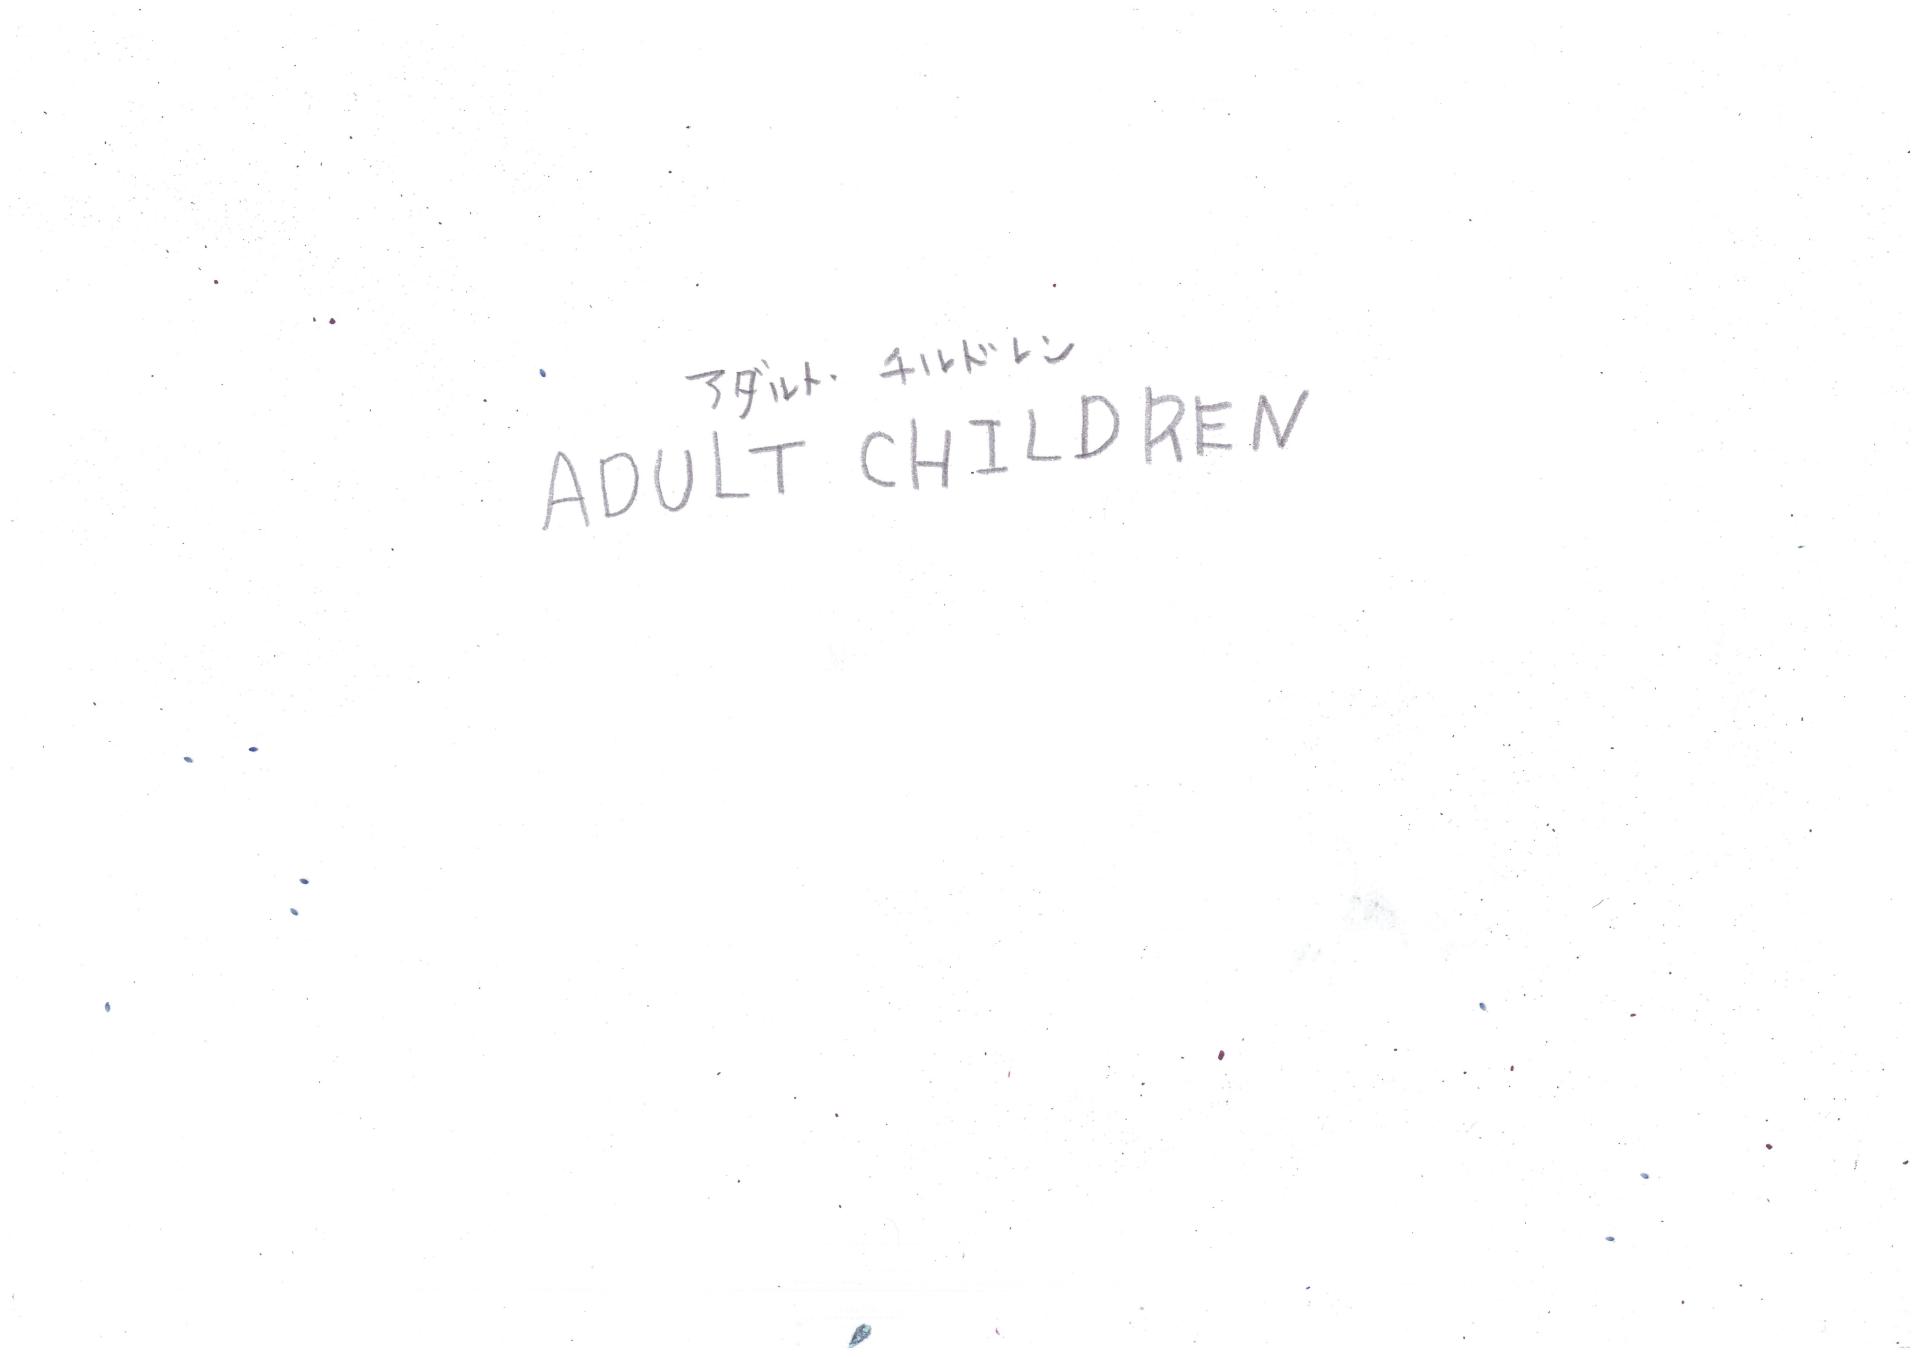 アダルト・チルドレン
ADULT CHILDREN